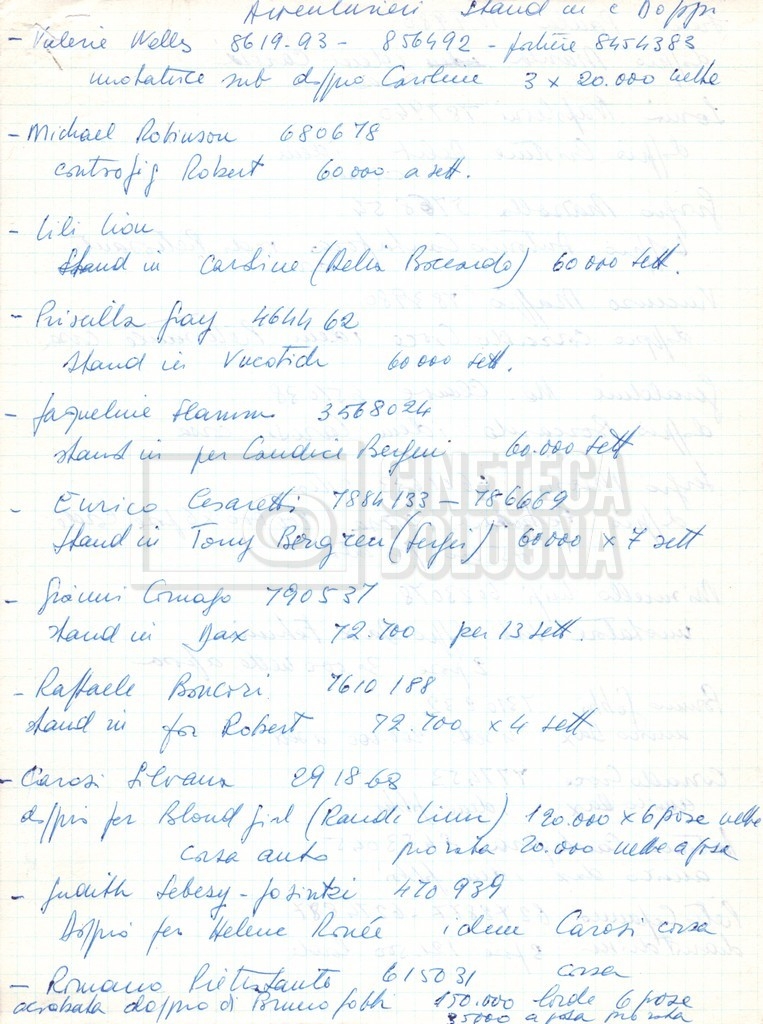 Avventurieri Stand in e Doppi
- Valerie Wells 8619-93 - 856492 - portiere 8454383
nuotatrice sub doppio Caroline 3 x 20.000 nette
- Michael Robinson 680678
controfig Robert 60000 a sett.
- Lili Lion
Stand in Caroline (Delia Boccardo) 60000 sett.
- Priscilla Gray 464462
Stand in Vucotich 60000 sett.
- Jaqueline Stamm 3568024
stand in per Candice Bergen 60.000 sett
- Enrico Cesaretti 7884133 - 786669
Stand in Tony Bergien (Sergei) 60000 x 7 sett
- Gianni Comago 790537
stand in Dax 72.700 per 13 sett.
- Raffaele Boncori 7610188
stand in for Robert 72.700 x 4 sett
- Carosi Silvana 291868
doppio per Blond girl (Randi Linn) 120.000 x 6 pose nette
corsa auto pro rata 20.000 nette a posa
- Judith Sebesy - Josintzi 470939
Doppio per Helene Ronée idem Carosi corsa
- Romano Pietrosanto 615031 corsa
acrobata doppio di Bruno Gobbi 150.000 lorde 6 pose
35000 a posa pro rata
CINETECA
BOLOGNA